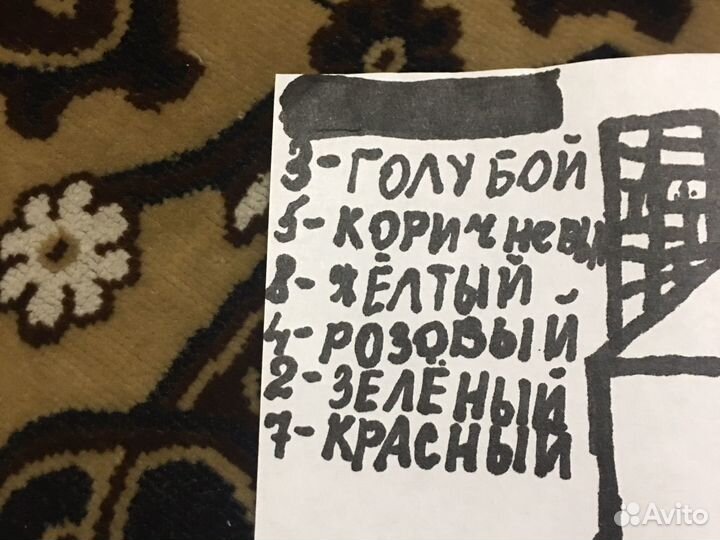 3-ГОЛУБОЙ
5-КОРИЧНЕВЫЙ
8-ЖЁЛТЫЙ
4-РОЗОВЫЙ
2-ЗЕЛЁНЫЙ
7-КРАСНЫЙ
Avito